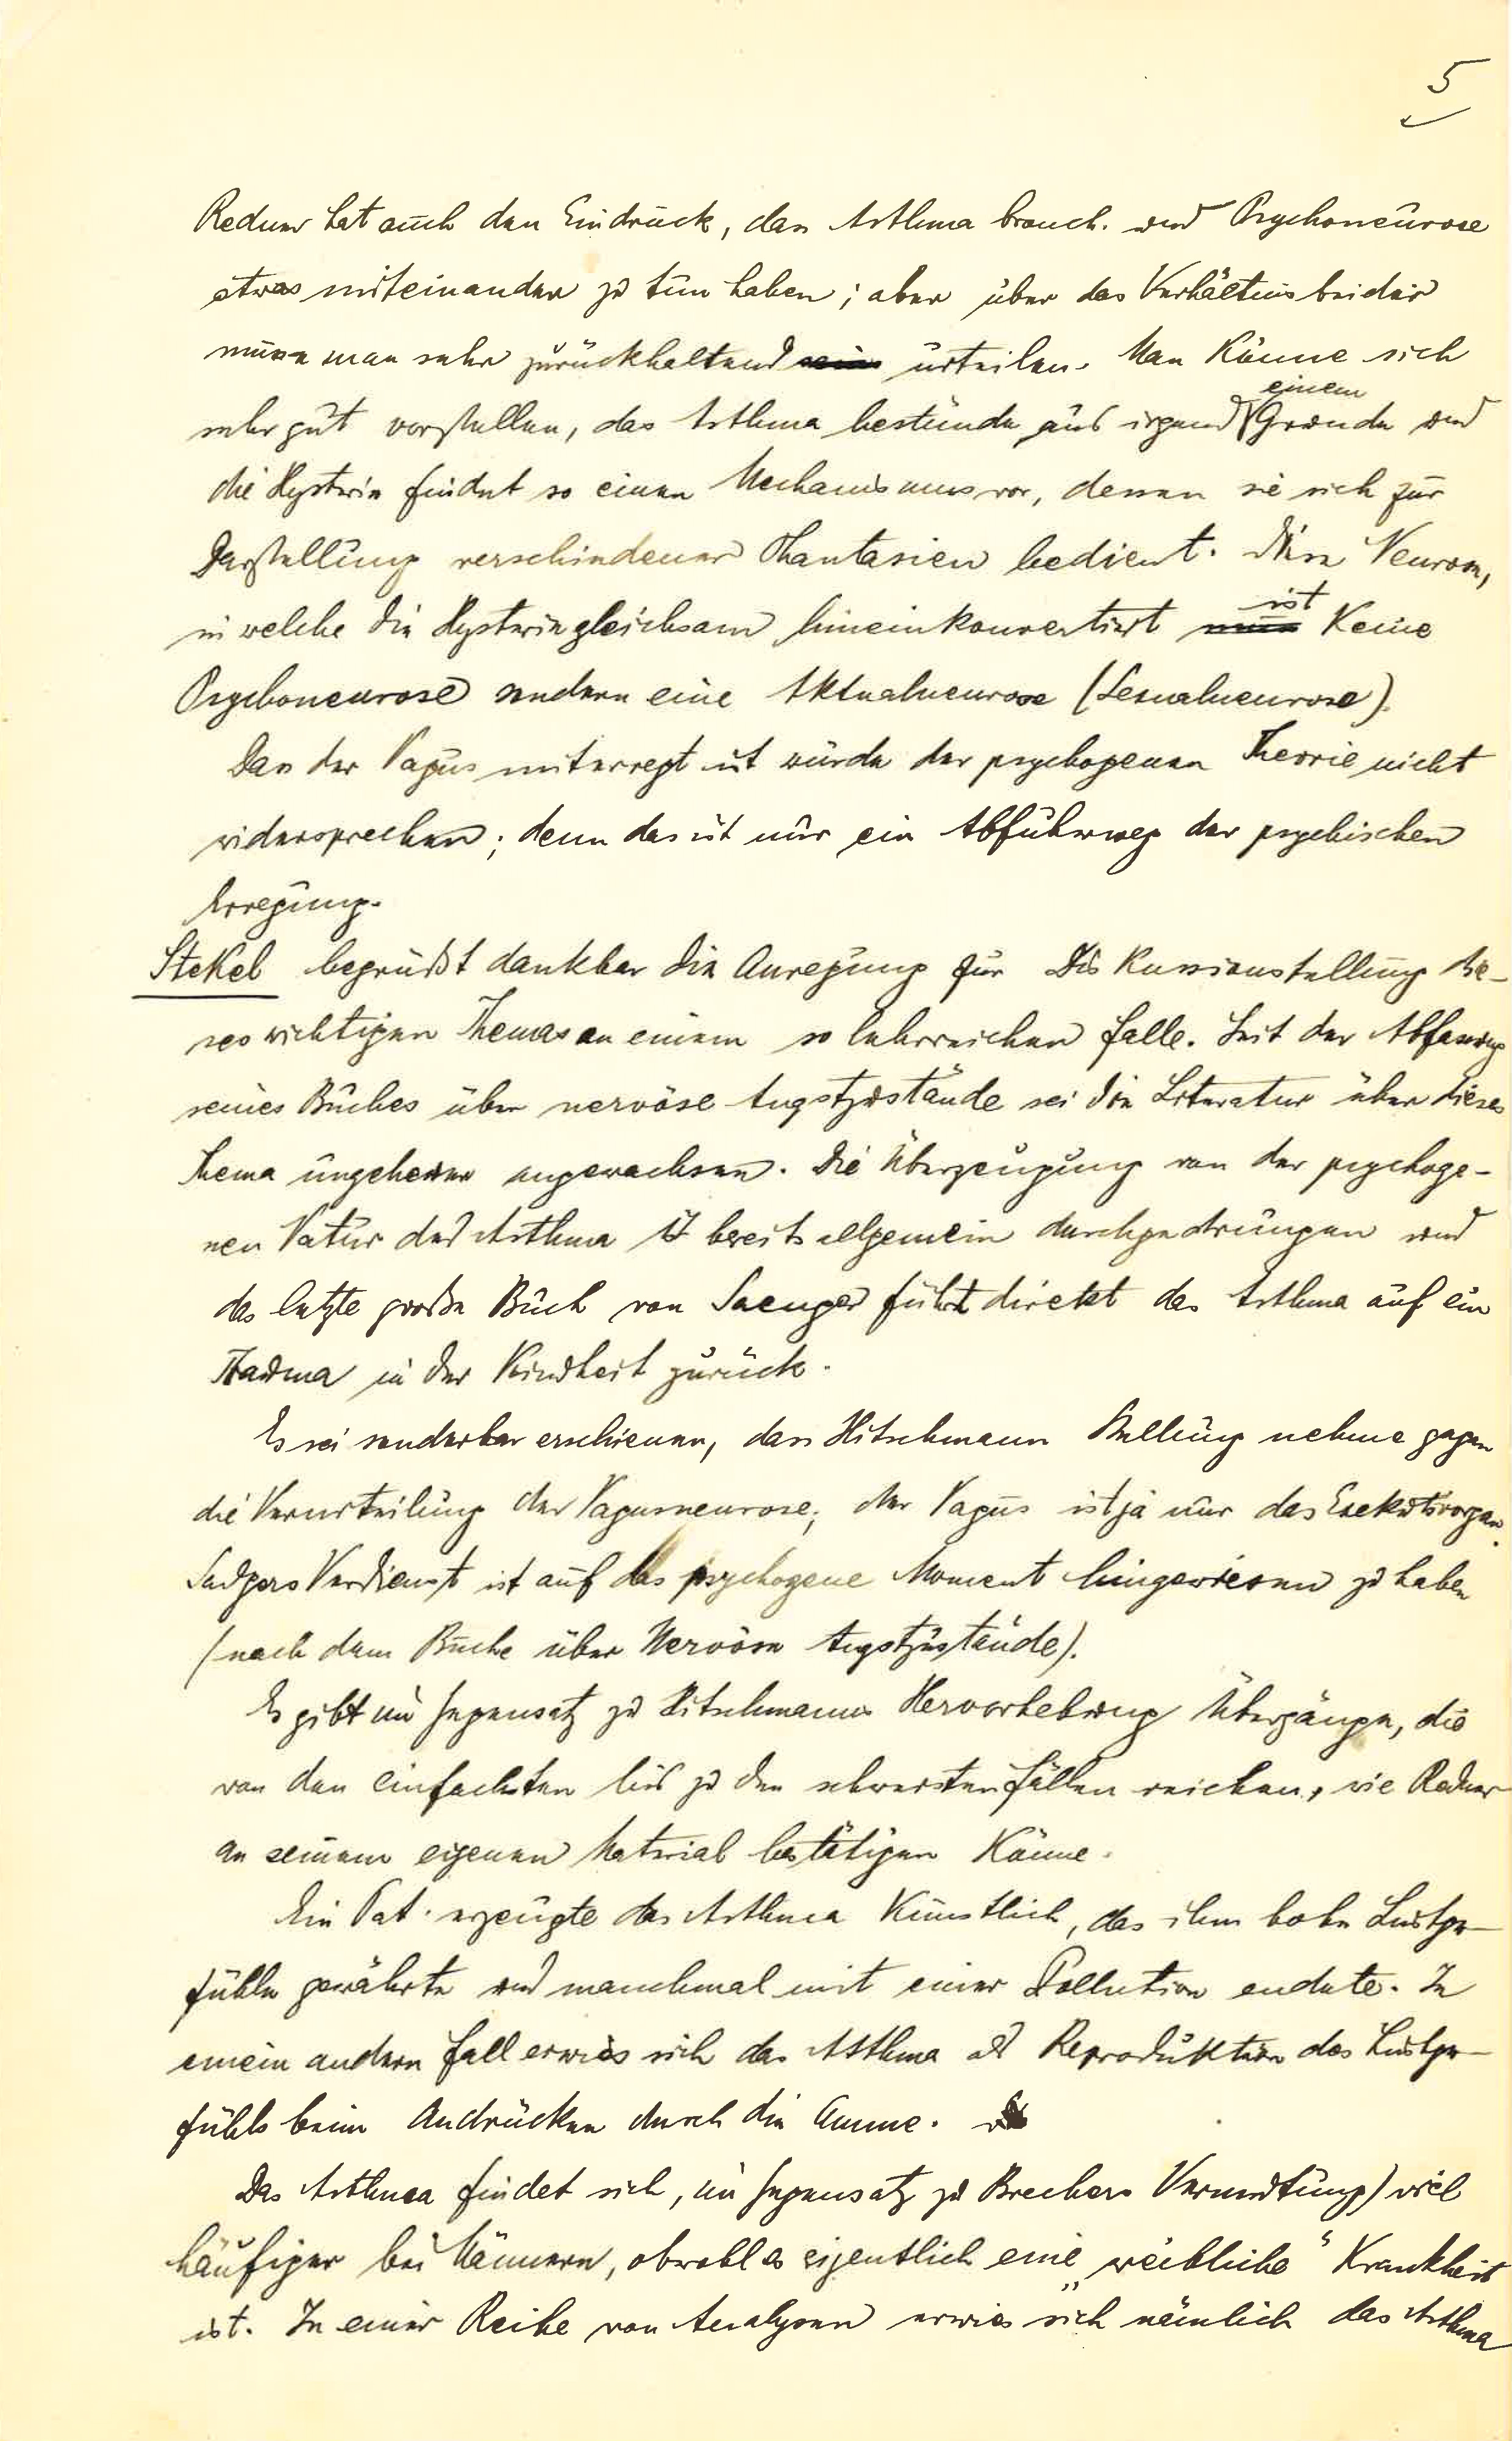 5
Redner hat auch den Eindruck, dass Asthma bronch. und Psychoneurose
etwas miteinander zu tun haben; aber über das Verhältnis beider
müsse man sehr zurückhaltend urteilen. Man könne sich
sehr gut vorstellen, das Asthma bestünde aus irgend einem Grunde und
die Hysterie findet so einen Mechanismus vor, dessen sie sich zur
Darstellung verschiedener Phantasien bedient. Diese Neurose,
in welche die Hysterie gleichsam hineinkonvertiert ist keine
Psychoneurose sondern eine Aktualneurose (Sexualneurose).
Dass der Vagus miterregt ist würde der psychogenen Theorie nicht
widersprechen; denn das ist nur ein Abfuhrweg der psychischen
Erregung.
Stekel begrüßt dankbar die Anregung für die Diskussionstellung die-
ses wichtigen Themas an einem so lehrreichen Falle. Seit der Abfassung
seines Buches über nervöse Angstzustände sei die Literatur über dieses
Thema ungeheuer angewachsen. Die Überzeugung von der psychoge-
nen Natur des Asthma ist bereits allgemein durchgedrungen und
das letzte große Buch von Saenger führt direkt das Asthma auf ein
Trauma in der Kindheit zurück.
Es sei sonderbar erschienen, dass Hitschmann Stellung nehme gegen
die Verurteilung der Vagusneurose; der Vagus ist ja nur das Exekutivorgan.
Sadgers Verdienst ist auf das psychogene Moment hingewiesen zu haben
(nach dem Buche über Nervöse Angstzustände).
Es gibt im Gegensatz zu Hitschmanns Hervorhebung Übergänge, die
von den einfachsten bis zu den schwersten Fällen reichen, wie Redner
an seinem eigenen Material bestätigen könne.
Ein Pat. erzeugte das Asthma künstlich, das ihm hohe Lustge-
fühle gewährte und manchmal mit einer Pollution endete. In
einem andern Fall erwies sich das Asthma als Reproduktion des Lustge-
fühls beim Andrücken durch die Amme.
Das Asthma findet sich, im Gegensatz zu Brechers Vermutung) viel
häufiger bei Männern, obwohl es eigentlich eine „weibliche“ Krankheit
ist. In einer Reihe von Analysen erwies sich nämlich das Asthma